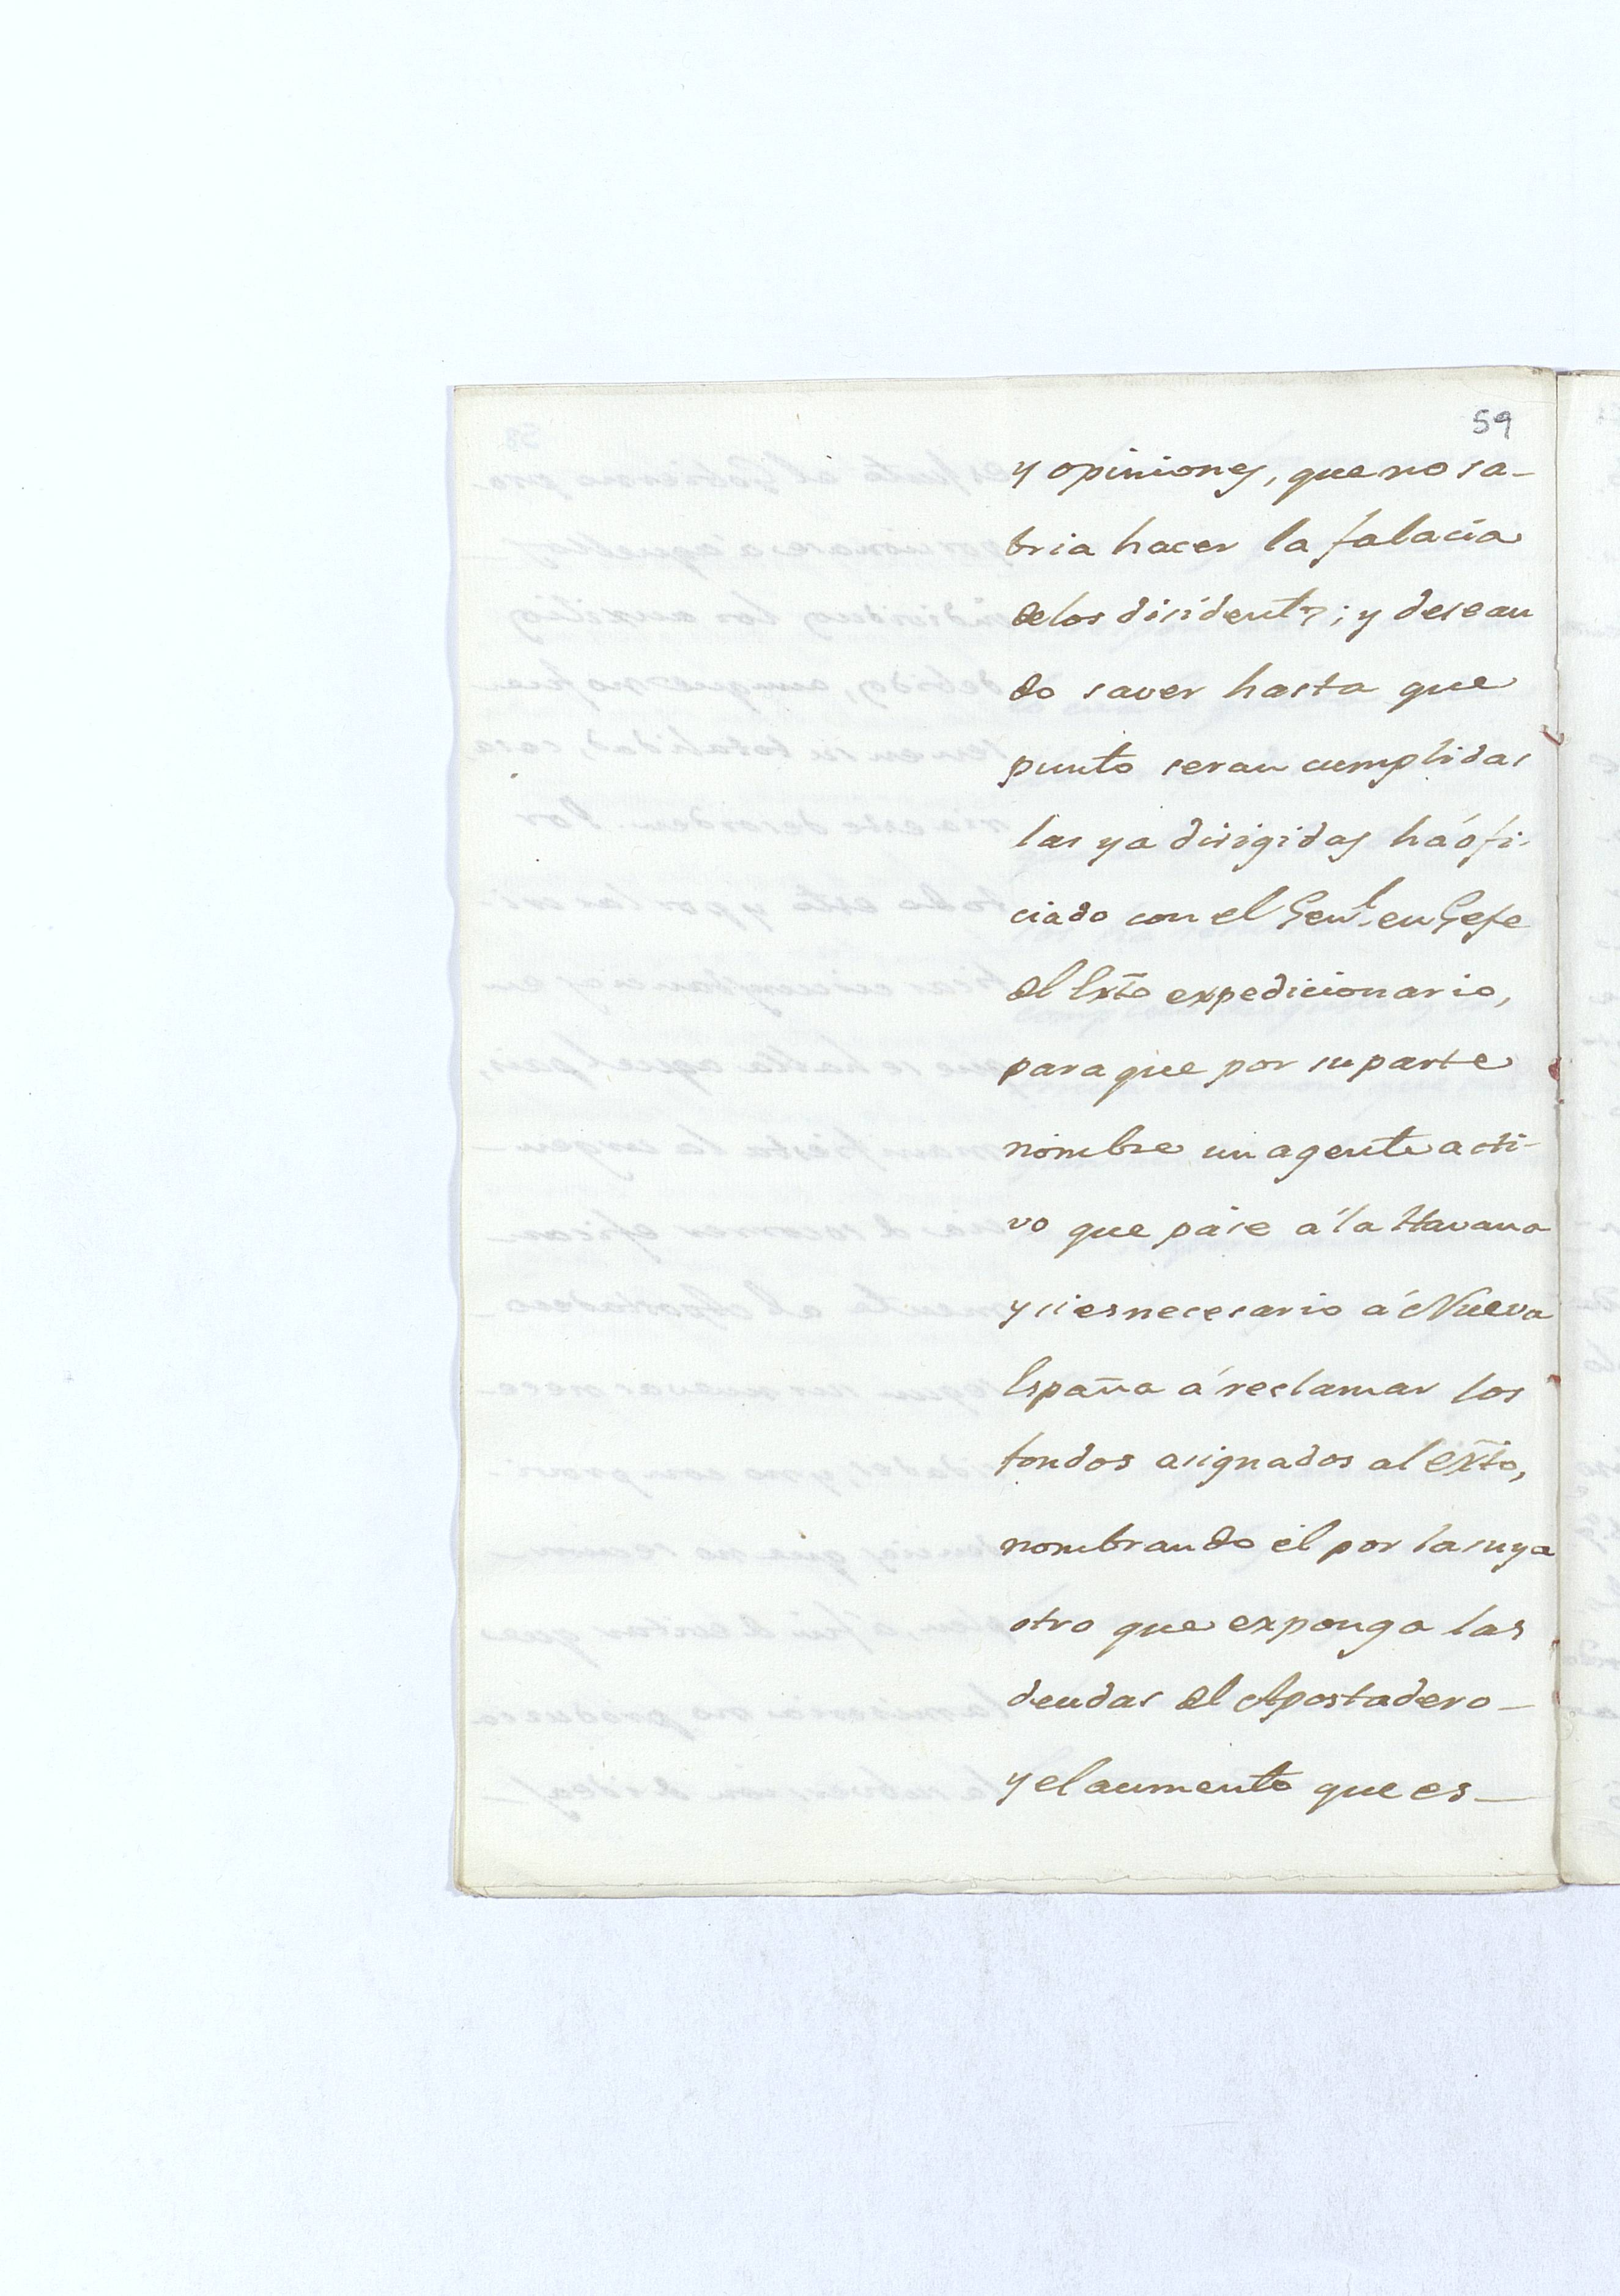 59
y opiniones, que no sa-
bria hacer la falacia
de los disidentes; y desean
do saver hasta que
punto seran cumplidas
las ya dirigidas há ofi-
ciado con el Genl. en Gefe
del Exto expedicionario,
para que por su parte
nombre un agente acti-
vo que pase á la Havana
y si es necesario á Nueva
España á reclamar los
fondos asignados al exto,
nombrando él por la suya
otro que exponga las
deudas del Apostadero-
y el aumento que es-